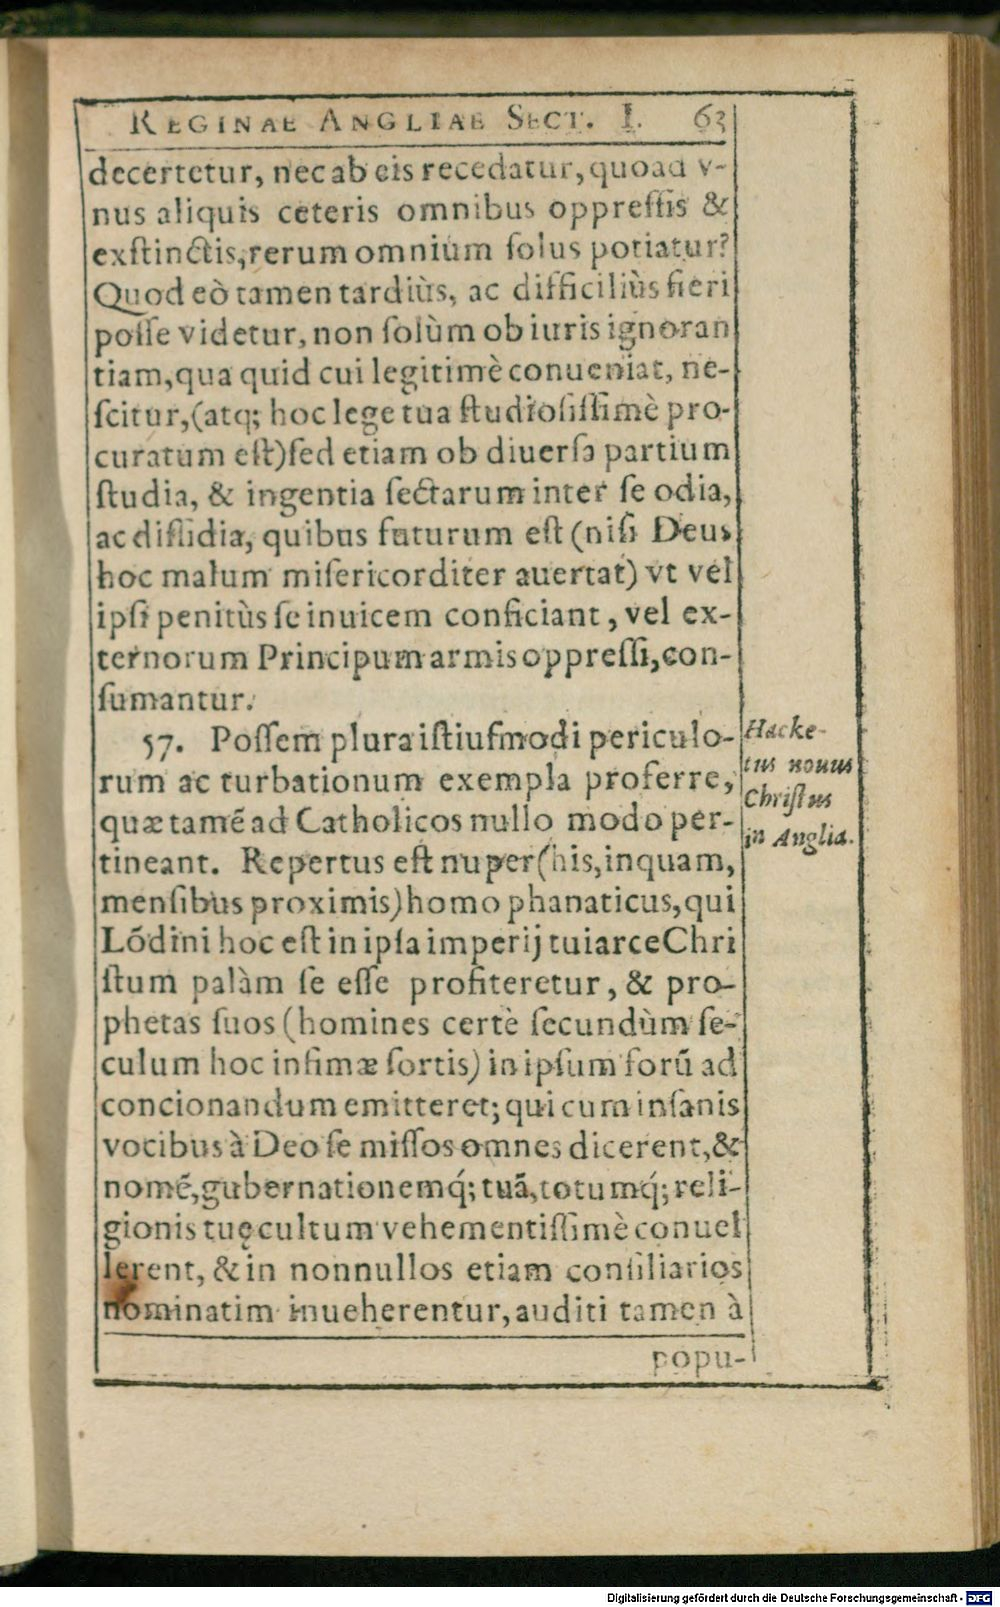 REGINAE ANGLIAE SECT. I. 63
decertetur, nec ab eis recedatur, quoad v-
nus aliquis ceteris omnibus oppreſſis &
exſtinctis, rerum omnium ſolus potiatur?
Quod eò tamen tardiùs, ac difficiliùs fieri
poſſe videtur, non ſolùm ob iuris ignoran
tiam, qua quid cui legitimè conueniat, ne-
ſcitur, (atq; hoc lege tua ſtudioſiſſimè pro-
curatum eſt) ſed etiam ob diuerſa partium
ſtudia, & ingentia ſectarum inter ſe odia,
ac diſſidia, quibus futurum eſt (niſi Deus
hoc malum miſericorditer auertat) vt vel
ipſi penitùs ſe inuicem conficiant, vel ex-
ternorum Principum armis oppreſſi, con-
ſumantur.
57. Poſſem plura iſtiuſmodi periculo-
rum ac turbationum exempla proferre,
quæ tamē ad Catholicos nullo modo per-
tineant. Repertus eſt nuper (his, inquam,
menſibus proximis) homo phanaticus, qui
Lōdini hoc eſt in ipſa imperij tui arce Chri
ſtum palàm ſe eſſe profiteretur, & pro-
phetas ſuos (homines certè ſecundùm ſe-
culum hoc infimæ ſortis) in ipſum forū ad
concionandum emitteret; qui cum inſanis
vocibus à Deo ſe miſſos omnes dicerent, &
nomē, gubernationemq́; tuā, totumq́; reli-
gionis tuę cultum vehementiſſimè conuel
lerent, & in nonnullos etiam conſiliarios
nominatim inueherentur, auditi tamen à
popu-
Hacke-
tus nouus
Chriſtus
in Anglia.
Digitalisierung gefördert durch die Deutsche Forschungsgemeinschaft - DFG